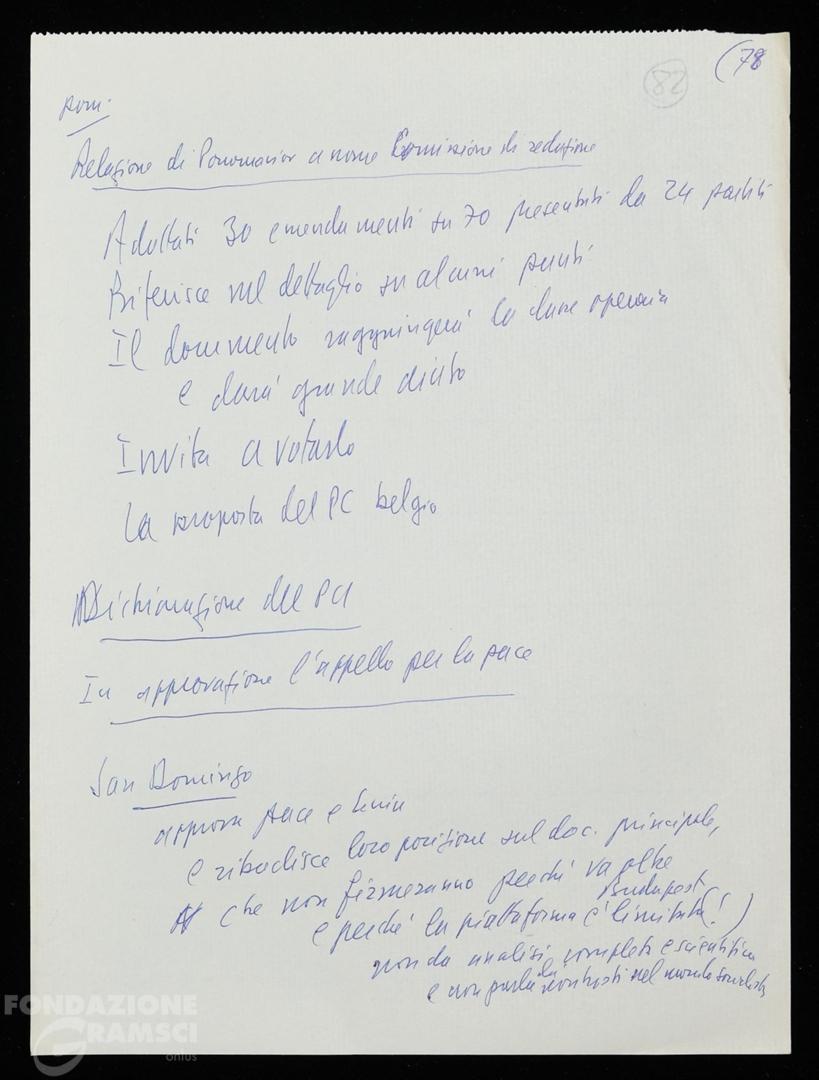 (78
82
pom.
Relazione di Ponomariov a nome Commissione di redazione
Adottati 30 emendamenti su 70 presentati da 24 partiti
Riferisce nel dettaglio su alcuni punti
Il documento raggiungerà la classe operaia
e darà grande aiuto
Invita a votarlo
La proposta del PC belgio
Dichiarazione del PCI
In approvazione l'appello per la pace
San Domingo
approva pace e Lenin
e ribadisce loro posizione sul doc. principale,
che non firmeranno perché va oltre
Budapest
e perché la piattaforma è limitata (!)
non da analisi completa e scientifica
e non parla contrasti nel mondo socialista
FONDAZIONE
GRAMSCI
onlus